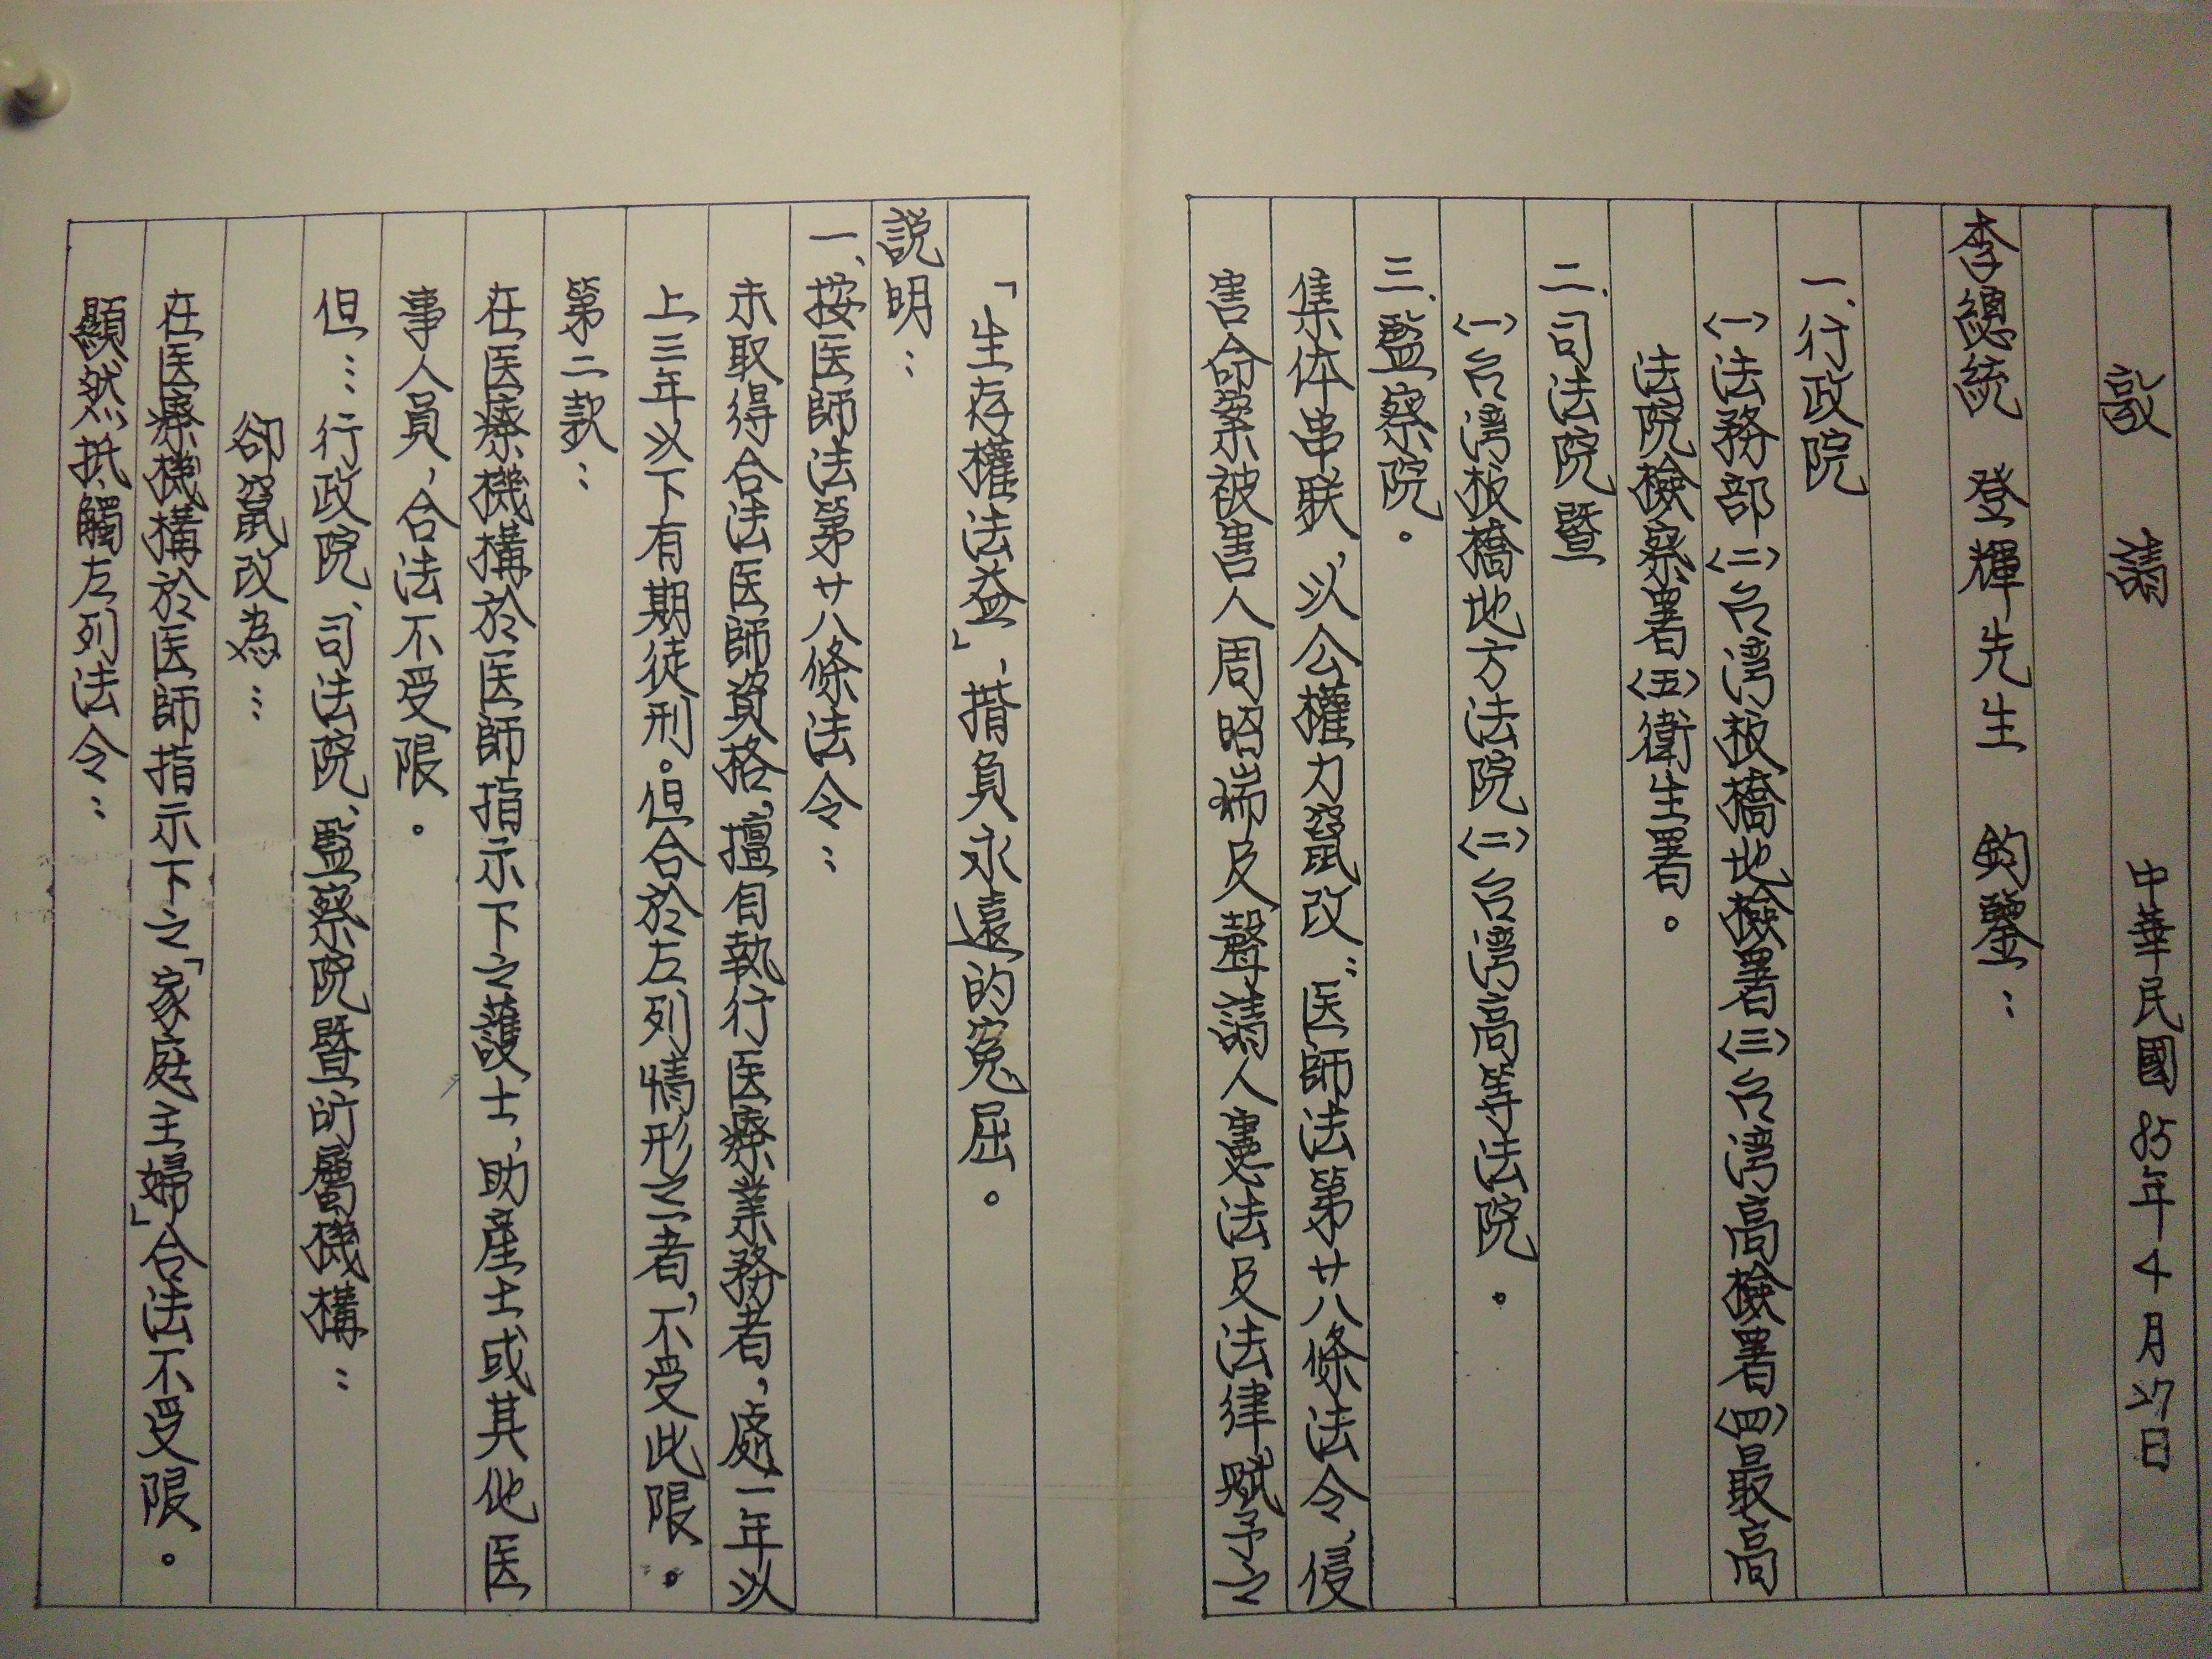 敬 請 中華民國85年4月27日
李總統 登輝先生 鈞鑒：
一、行政院
㈠法務部㈡台湾板橋地檢署㈢台湾高檢署㈣最高
法院檢察署㈤衛生署。
二、司法院暨
㈠台湾板橋地方法院㈡台湾高等法院。
三、監察院。
集体串联，以公權力竄改“医師法第廿八條法令，侵
害命案被害人周昭端及聲請人憲法及法律賦予之
「生存權法益」，揹負永遠的冤屈。
說明：
一、按医師法第廿八條法令：
未取得合法医師資格，擅自執行医療業務者，處一年以
上三年以下有期徒刑。但合於左列情形之一者，不受此限。
第二款：
在医療機構於医師指示下之護士，助產士或其他医
事人員，合法不受限。
但…行政院、司法院、監察院暨所屬機構：
卻竄改為…
在医療機構於医師指示下之「家庭主婦」合法不受限。
顯然，抵觸左列法令：